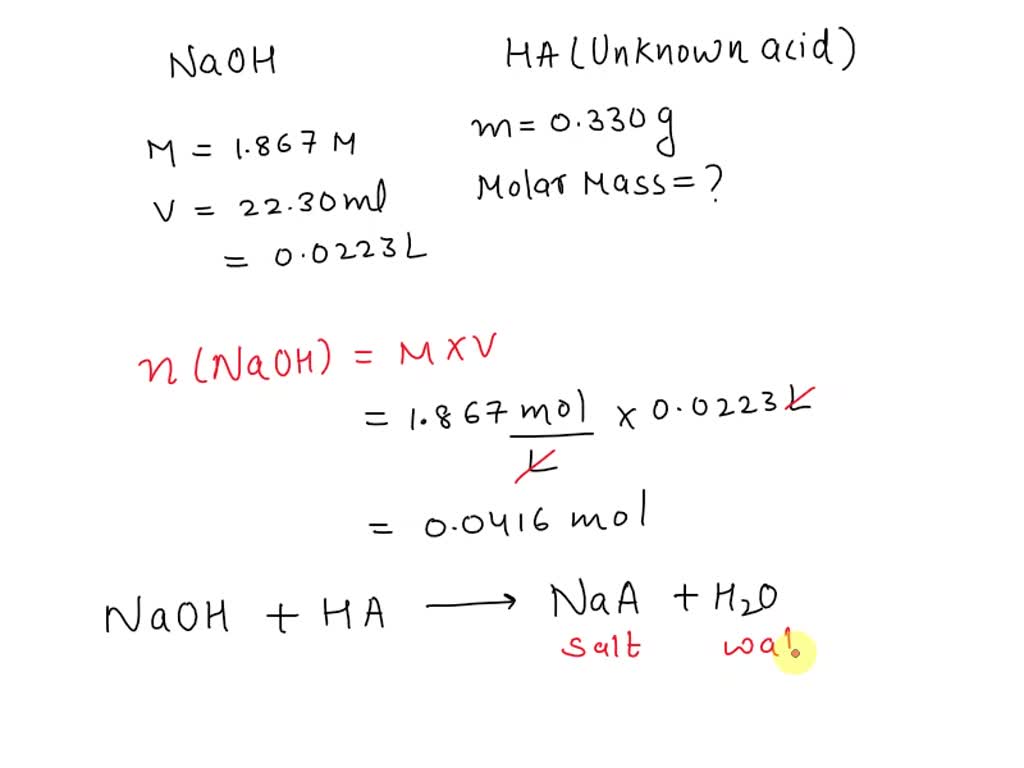 NaOH HA (Unknown acid)
M = 1.867 M m = 0.330 g
V = 22.30 ml Molar Mass = ?
= 0.0223 L
n (NaOH) = M X V
= 1.867 mol/L x 0.0223 L
= 0.0416 mol
NaOH + HA ⟶ NaA + H₂O
salt wat